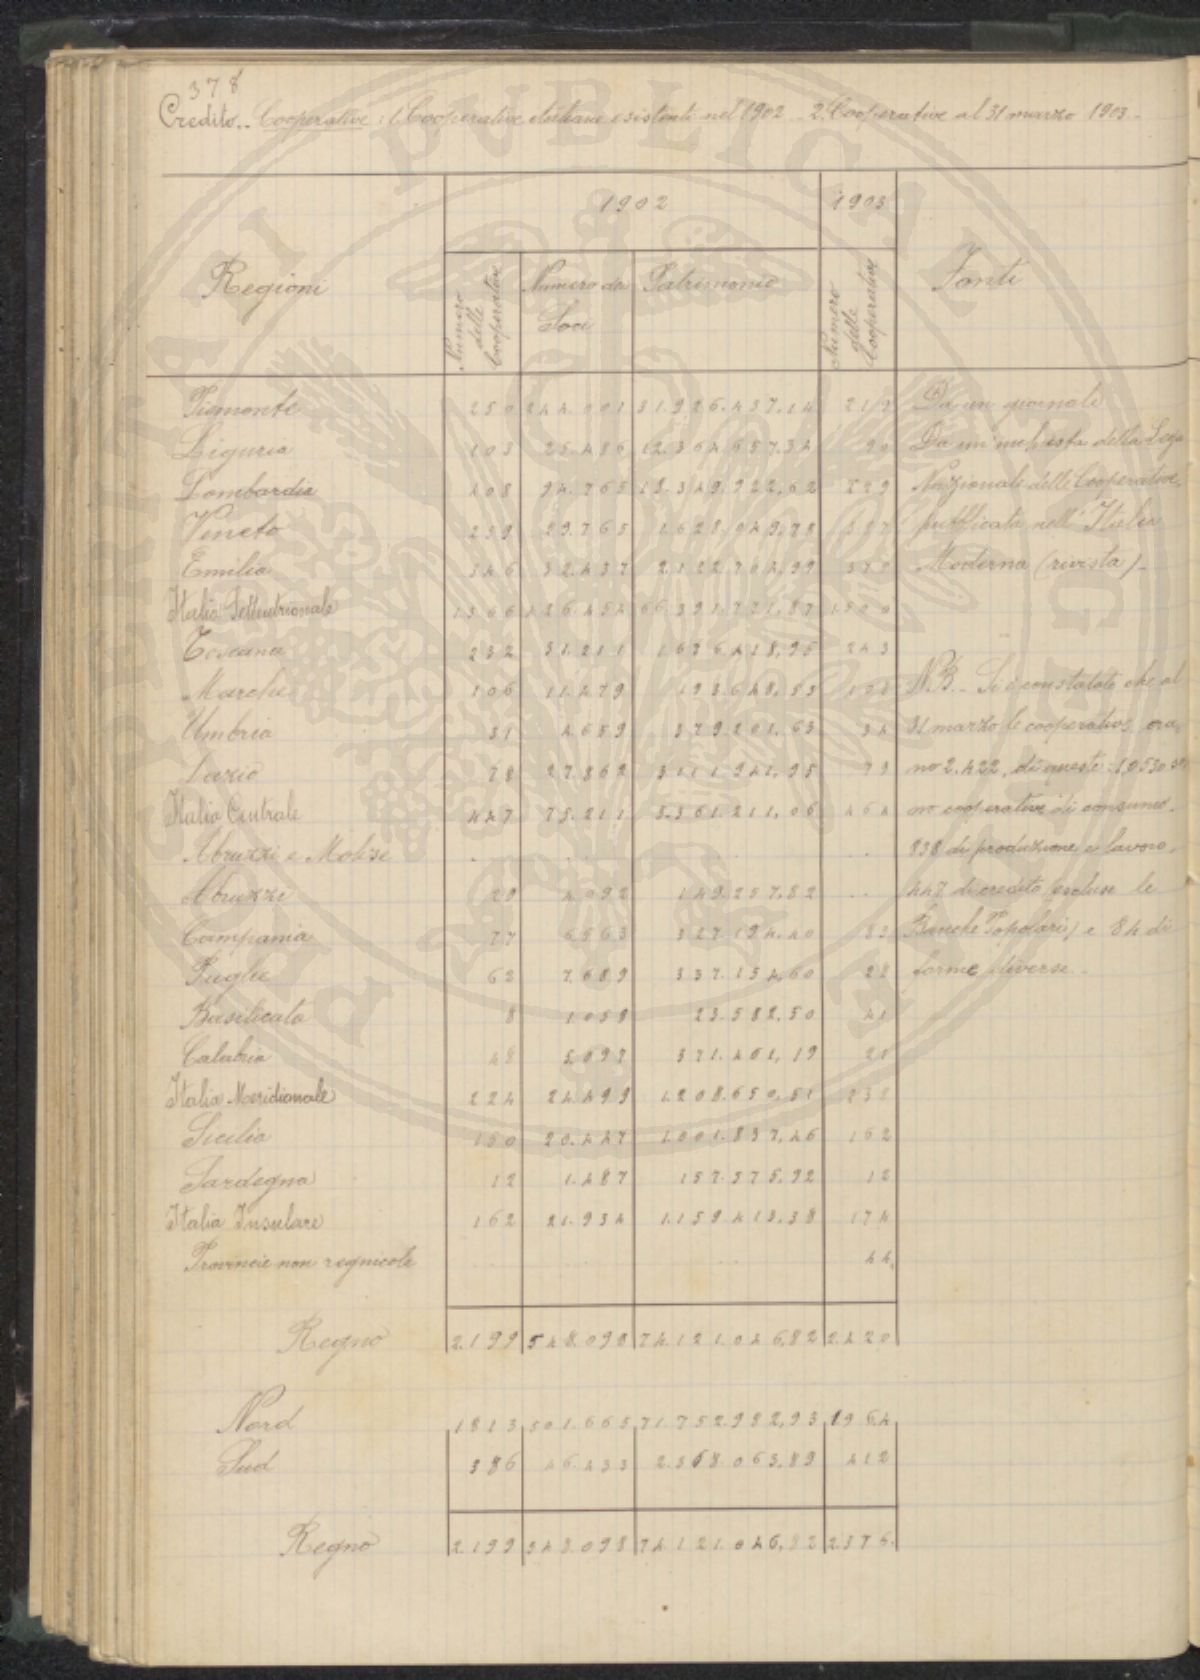 378
Credito.. Cooperative : 1. Cooperative italiane esistenti nel 1902 - 2. Cooperative al 31 marzo 1903 -
Regioni 1902 1903 Fonti
Numero delle Cooperative Numero dei Soci Patrimonio Numero delle Cooperative
Piemonte 250 244.001 31.926.437.14 219 Da un giornale
Liguria 103 25.486 12.364.657.34 90 Da un'inchiesta della Lega
Lombardia 408 94.765 18.349.922,62 Nazionale delle Cooperative,
Veneto 259 29.765 1.628.949,78 pubblicata nell'Italia
Emilia 346 32.437 2.122.704,99 Moderna (rivista) -
Italia Settentrionale 1366 426.454 66.391.721,87 1500
Toscana 232 31.211 1.676.418,95 243
Marche 106 11.479 193.648,53 N.B. - Si è constatato che al
Umbria 31 4.659 379.201,63 34 31 marzo le cooperative era,
Lazio 78 27.862 3.111.941,95 79 no 2.422, di queste 1.053 so,
Italia Centrale 447 75.211 5.361.211,06 464 no cooperative di consumo.
Abruzzi e Molise 838 di produzione e lavoro,
Abruzzi 29 4.092 149.257,82 447 di credito (escluse le
Campania 77 6563 327.194.40 83 Banche Popolari) e 84 di
Puglie 62 7.689 337.154,60 forme diverse.
Basilicata 8 1.059 23.582,50 41
Calabria 48 5.097 371.461,19 21
Italia Meridionale 224 24.499 1.208.650,51 238
Sicilia 150 20.447 1.001.837,46 162
Sardegna 12 1.487 157.575,92 12
Italia Insulare 162 21.934 1.159.413,38 174
Provincie non regnicole 44
Regno 2.199 548.098 74.121.046,82 2.420
Nord 1813 501.665 71.752.982,93 1964
Sud 386 46.433 2.368.063,89 412
Regno 2.199 548.098 74.121.046,82 2376.